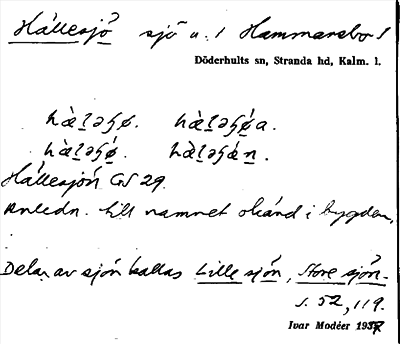 Hällesjö sjö u. 1 Hammarsbo 1
Döderhults sn, Stranda hd, Kalm. l.
Hällesjön GS 29.
Anledn. till namnet okänd i bygden,
Delar av sjön kallas Lille sjön, Store sjön.
s. 52, 119.
Ivar Modéer 1937